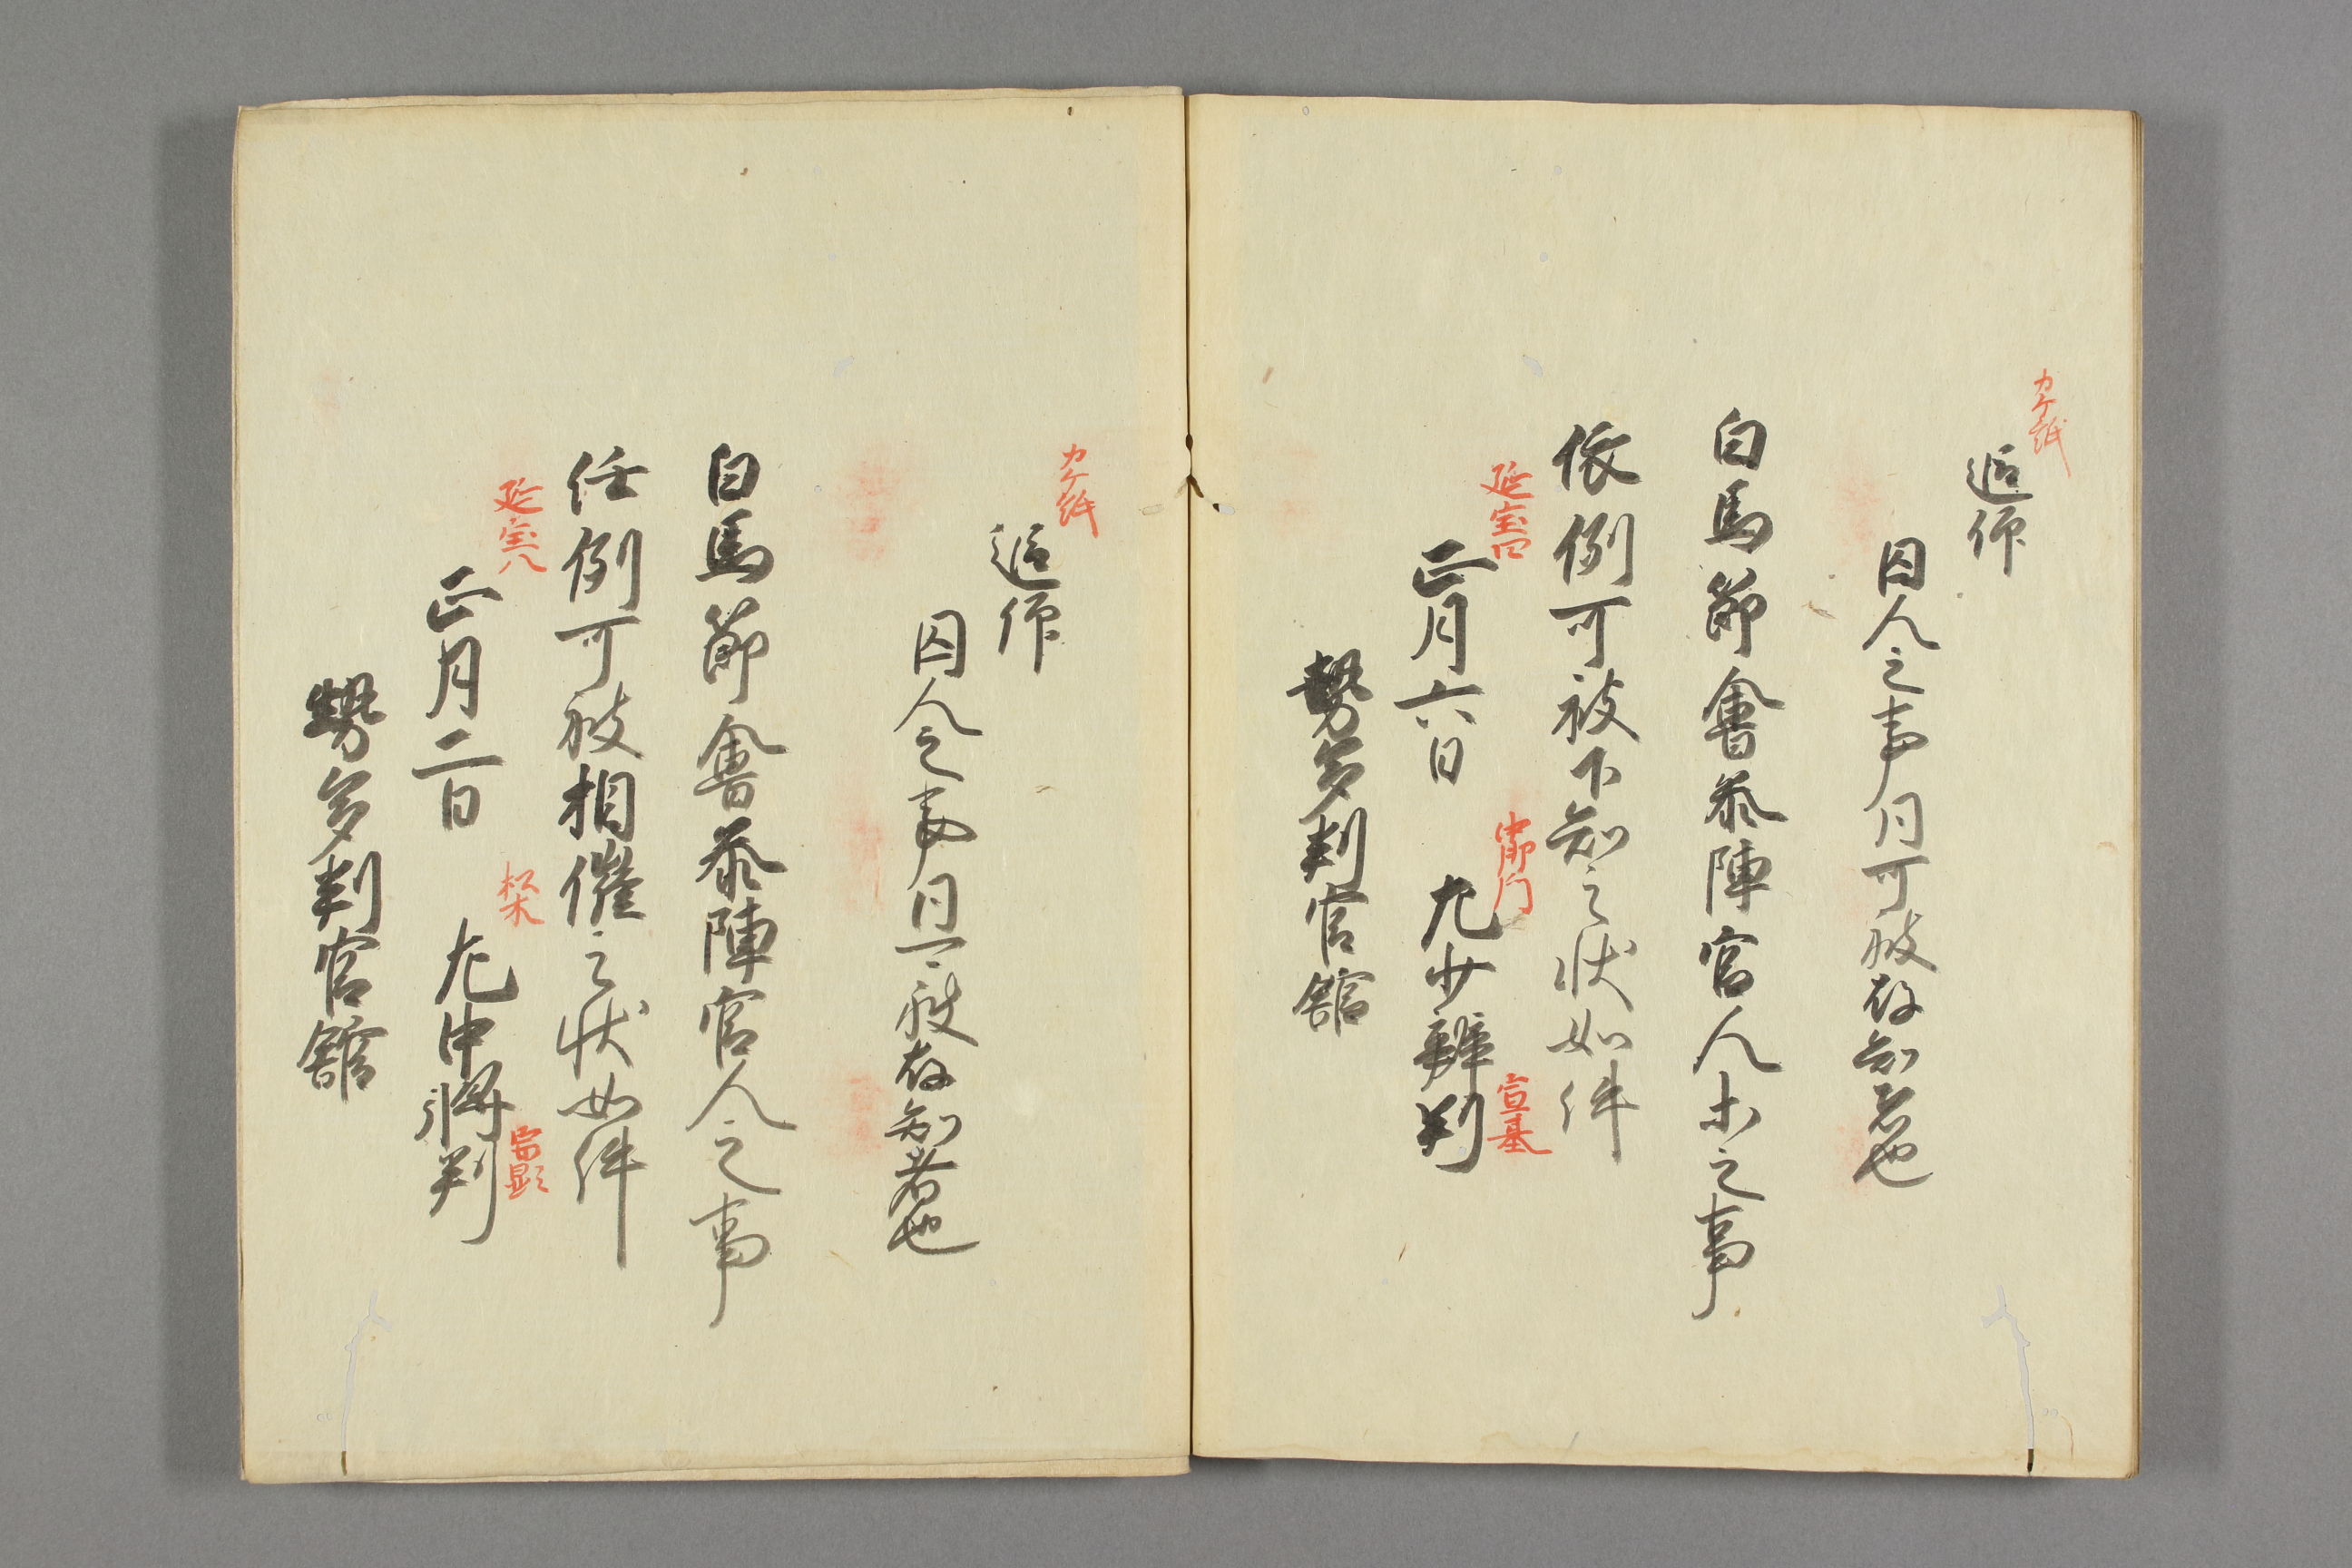 カケ紙
追仰
囚人之事同可被存知者也
白馬節會参陣官人等之事
依例可被下知之状如件
延宝四
正月六日　左少辨判
中御門
宣基
勢多判官舘
カケ紙
追仰
囚人之事同可被存知者也
白馬節會参陣官人之事
任例可被相催之状如件
延宝八
正月二日　左中将判
松木
宗顕
勢多判官舘